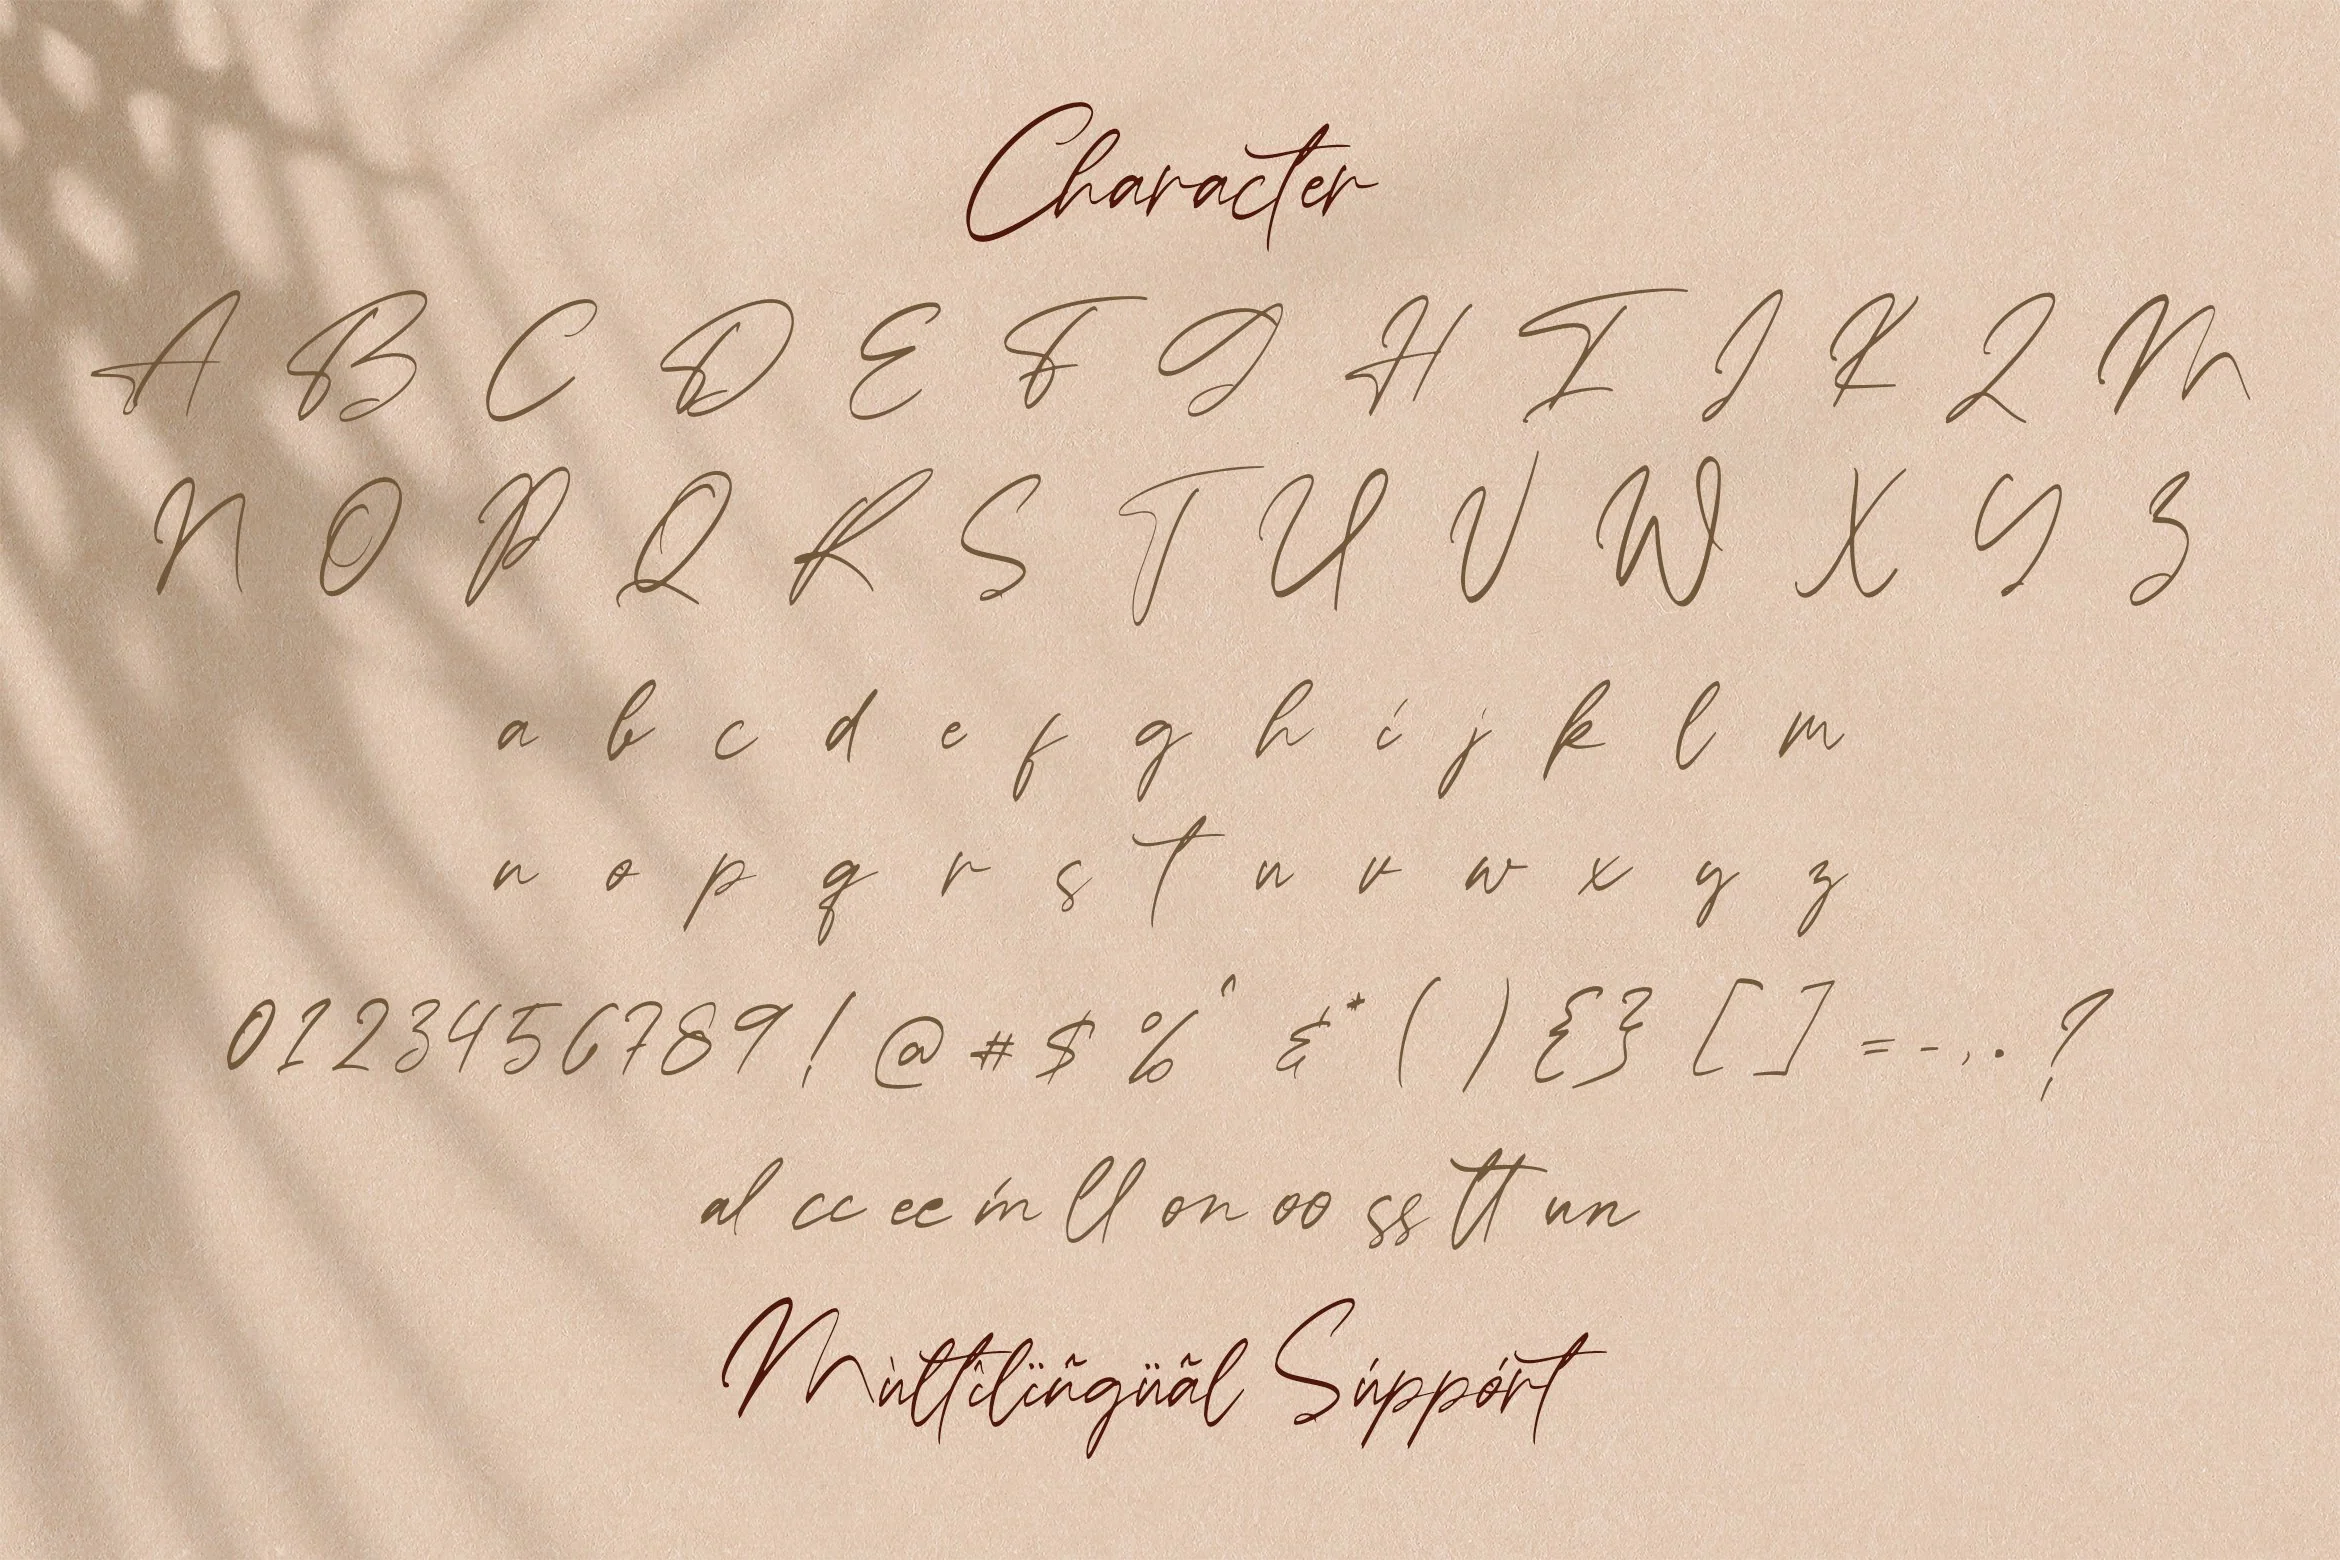 Character
A B C D E F G H I J K L M
N O P Q R S T U V W X Y Z
a b c d e f g h i j k l m
n o p q r s t u v w x y z
0 1 2 3 4 5 6 7 8 9 ! @ # $ % ^ & * ( ) { } [ ] = - , . ?
al cc ee in ll on oo ss tt un
Mùltîlïñgüãl Súppórt